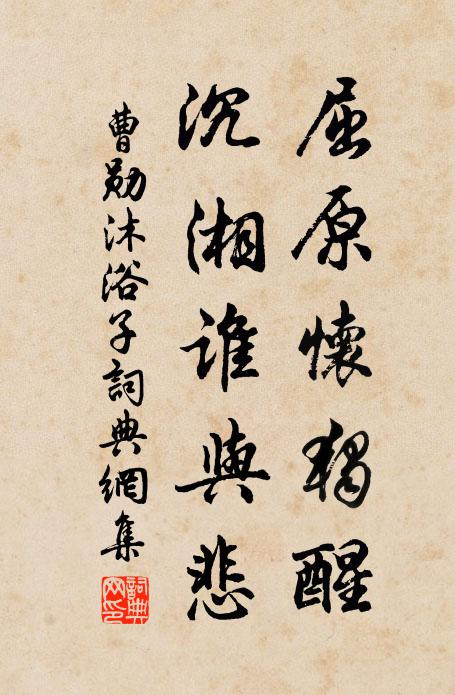 屈原懷獨醒
沉湘誰與悲
曹勛沐浴子詞典網集
詞典網印